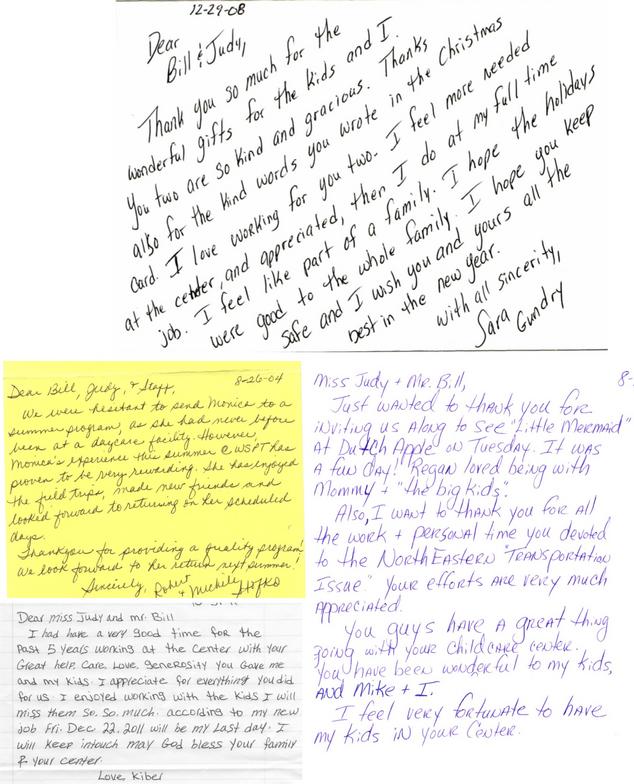 12-29-08
Dear
Bill & Judy,
Thank you so much for the
wonderful gifts for the kids and I.
You two are so kind and gracious. Thanks
also for the kind words you wrote in the Christmas
Card. I love working for you two. I feel more needed
at the center, and appreciated, then I do at my full time
job. I feel like part of a family. I hope the holidays
were good to the whole family. I hope you keep
safe and I wish you and yours all the
best in the new year.
with all sincerity,
Sara
Gundry
Dear Bill, Judy, & Staff,
8-26-04
We were hesitant to send Monica to a
summer program, as she had never before
been at a daycare facility. However,
Monica's experience this summer @ WSPT has
proven to be very rewarding. She has enjoyed
the field trips, made new friends and
looked forward to returning on her scheduled
days.
Thank you for providing a quality program!
We look forward to her return next summer!
Sincerely, Robert
& Michele
Dear miss Judy and mr. Bill
I had have a very good time for the
Past 5 years working at the Center with your
Great help. Care. Love. generosity You Gave me
and my Kids. I appreciate for everything You did
for us. I enjoyed working with the Kids I will
miss them So. So. much. according to my new
Job Fri. Dec 22. 2011 will be my Last day. I
will keep intouch may God bless your family
& your center.
Love, Kiber
Miss Judy + Mr. Bill,
8-
Just wanted to thank you fore
inviting us along to see "Little Mermaid"
at Dutch Apple on Tuesday. It was
a fun day! Regan loved being with
Mommy + "the big kids".
Also, I want to thank you for all
the work + personal time you devoted
to the NorthEastern "Transportation
Issue." Your efforts are very much
appreciated.
You guys have a great thing
going with your childcare center.
You have been wonderful to my kids,
and Mike + I.
I feel very fortunate to have
my kids in your Center.